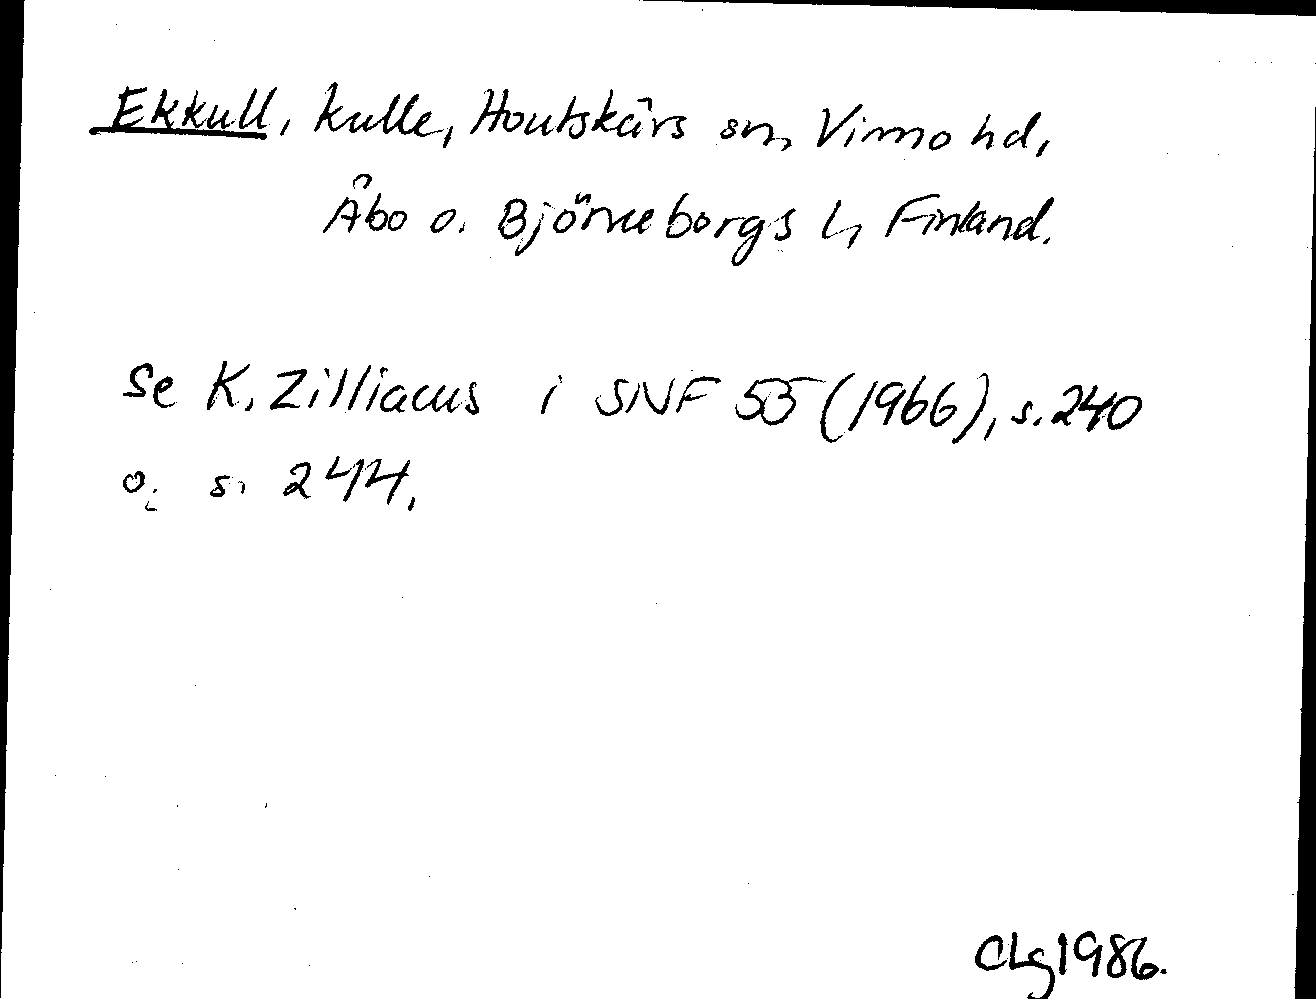 Ekkull, kulle, Houtskärs sn, Virmo hd,
Åbo o. Björneborgs l, Finland.
Se K. Zilliacus i SNF 55 (1966), s. 240
o. s. 244.
CLg 1986.